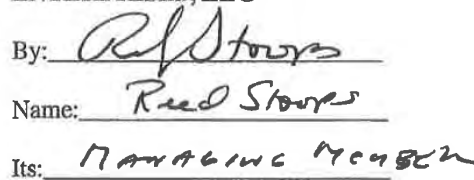 LLC
By: Reed Stoops
Name: Reed Stoops
Its: MANAGING MEMBER